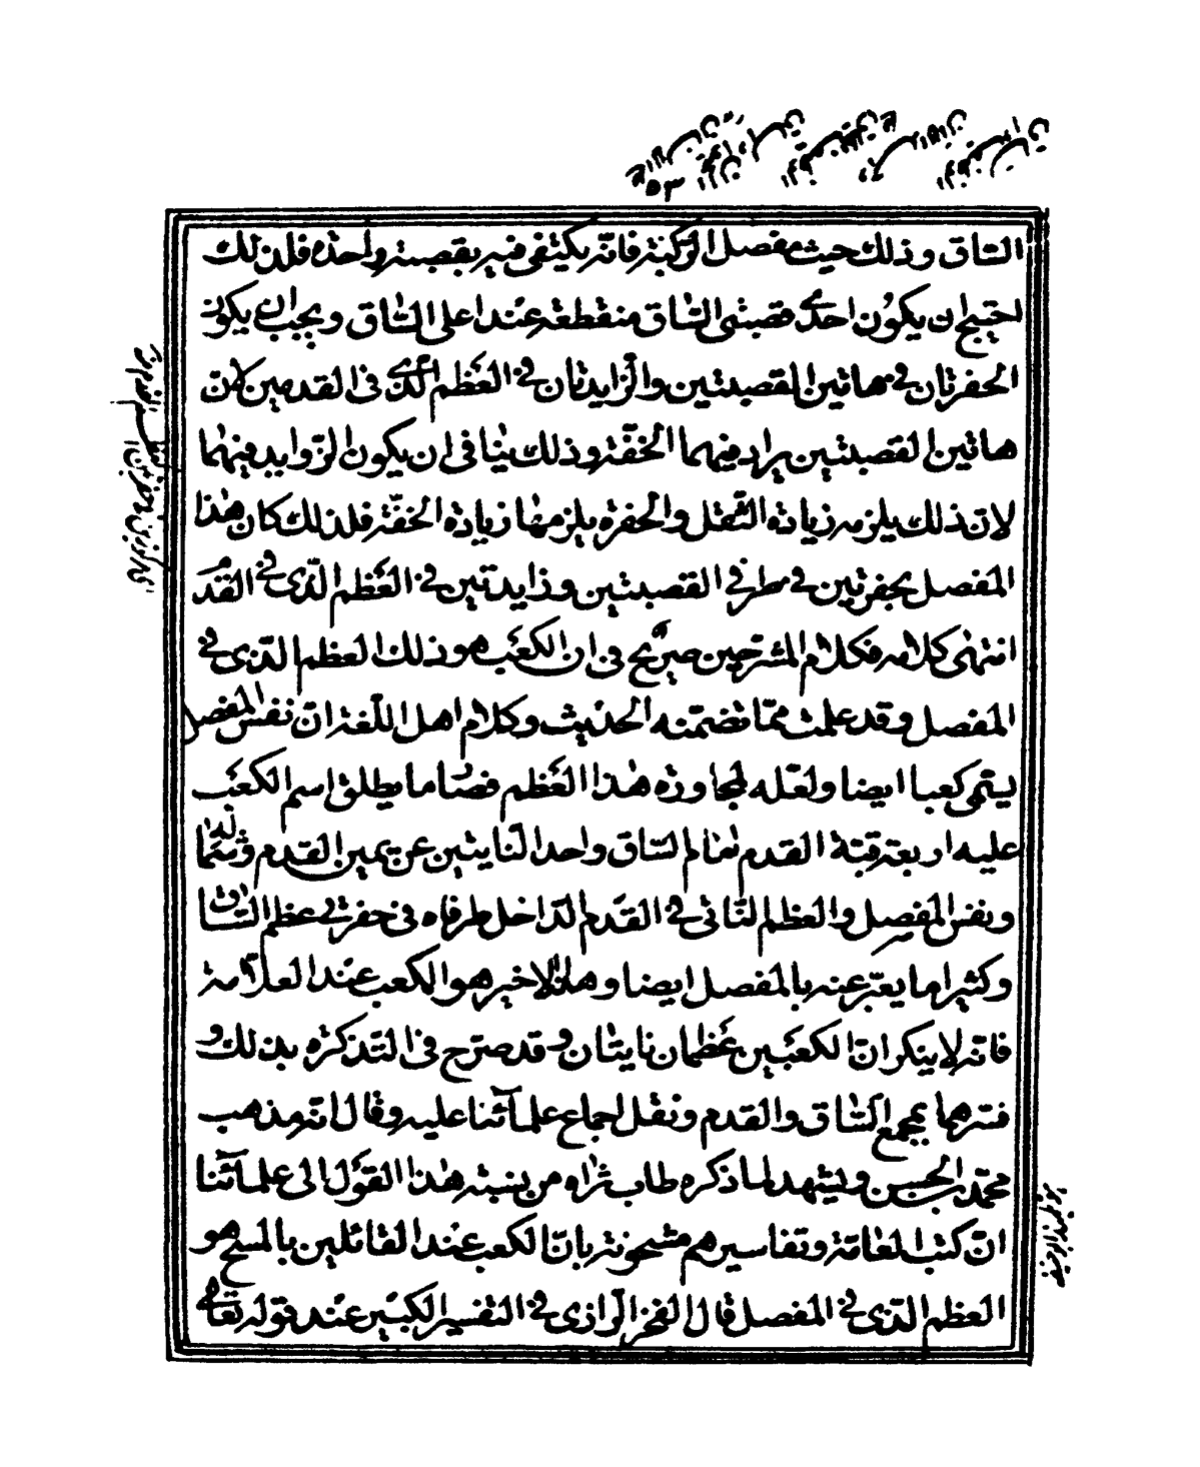 الساق وذلك حيث مفصل الركبة فانّه يكتفى فيه بقصبة واحدة فلذلك
احتيج ان يكون احدى قصبتى الساق منقطعة عند اعلى الساق ويجب ان يكون
الحفرتان فى هاتين القصبتين والزايدتان فى العظم الّذى فى القدمين لان
هاتين القصبتين يراد فيهما الخفّة وذلك ينافى ان يكون الزوايد فيهما
لان ذلك يلزمه زيادة الثقل والحفرة يلزمها زيادة الخفّة فلذلك كان هذا
المفصل بحفرتين فى طرفى القصبتين وزايدتين فى العظم الّذى فى القدم
انتهى كلامه فكلام المشرّحين صريح فى ان الكعب هو ذلك العظم الّذى فى
المفصل وقد علمت ممّا تضمّنه الحديث وكلام اهل اللّغة انّ نفس المفصل
يسمّى كعبا ايضا ولعلّه لمجاورة هذا العظم فصار ما يطلق اسم الكعب
عليه اربعة قبّة القدم امام الساق واحد النّاتيين عن يمين القدم وشماله
ونفس المفصل والعظم النّاتى فى القدم الدّاخل طرفاه فى حفرتى عظم الساق
وكثيرا ما يعبّر عنه بالمفصل ايضا وهذا الاخير هو الكعب عند العلّامة
فانّه لا ينكر انّ الكعبين عظمان ناتيان وقد صرّح فى التذكرة بذلك و
فسّرهما بمجمع الساق والقدم ونقل اجماع علمآئنا عليه وقال انّه مذهب
محمّد بن الحسن ويشهد لما ذكره طاب ثراه من نسبة هذا القول الى علمآئنا
انّ كتب العامّة وتفاسيرهم مشحونة بانّ الكعب عند القائلين بالمسح هو
العظم الّذى فى المفصل قال الفخر الرازى فى التفسير الكبير عند قوله تعالى